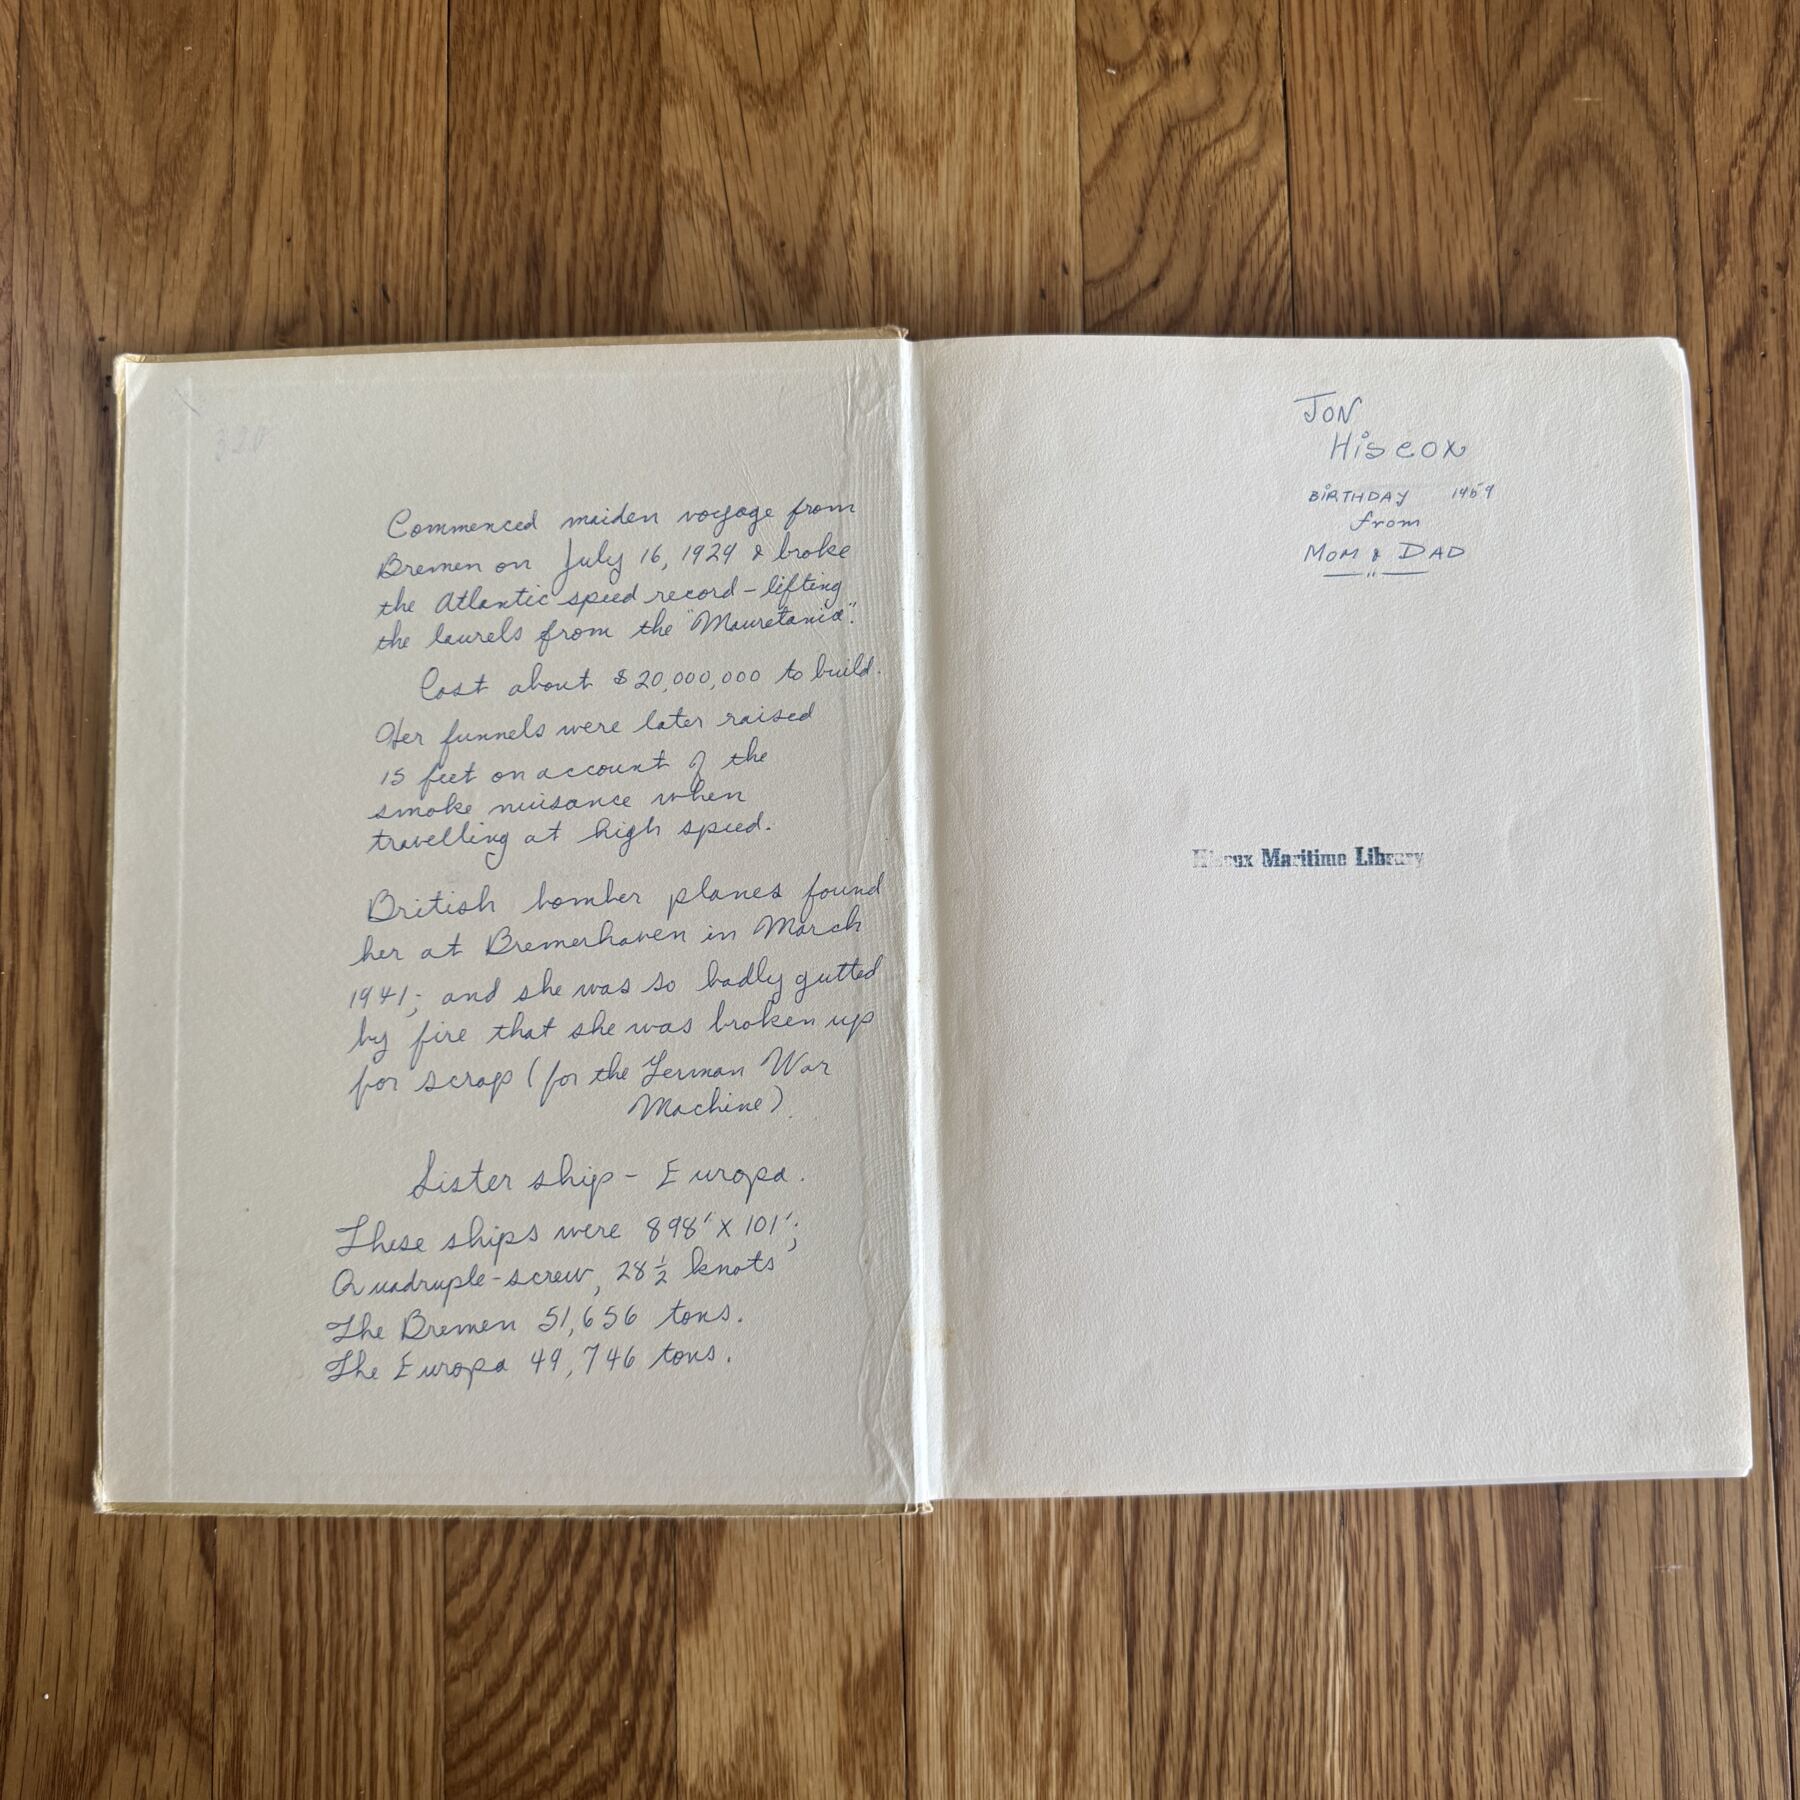 Commenced maiden voyage from
Bremen on July 16, 1929 & broke
the Atlantic speed record – lifting
the laurels from the "Mauretania".
Cost about $20,000,000 to build.
Her funnels were later raised
15 feet on account of the
smoke nuisance when
travelling at high speed.
British bomber planes found
her at Bremerhaven in March
1941; and she was so badly gutted
by fire that she was broken up
for scrap (for the German War
Machine).
Sister ship – Europa.
These ships were 898' x 101';
Quadruple-screw, 28½ knots
The Bremen 51,656 tons.
The Europa 49,746 tons.
JON
HiscOX
BIRTHDAY 1969
from
MOM & DAD
Hiscox Maritime Library